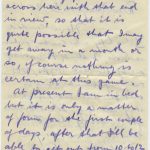 across here with that end
in view, so that it is
quite possible that I may
get away in a month or
so, of course nothing is
certain at this game.
At present I am in bed
but it is only a matter
of form for the first couple
of days, after that I'll be
able to sit out from 10 till